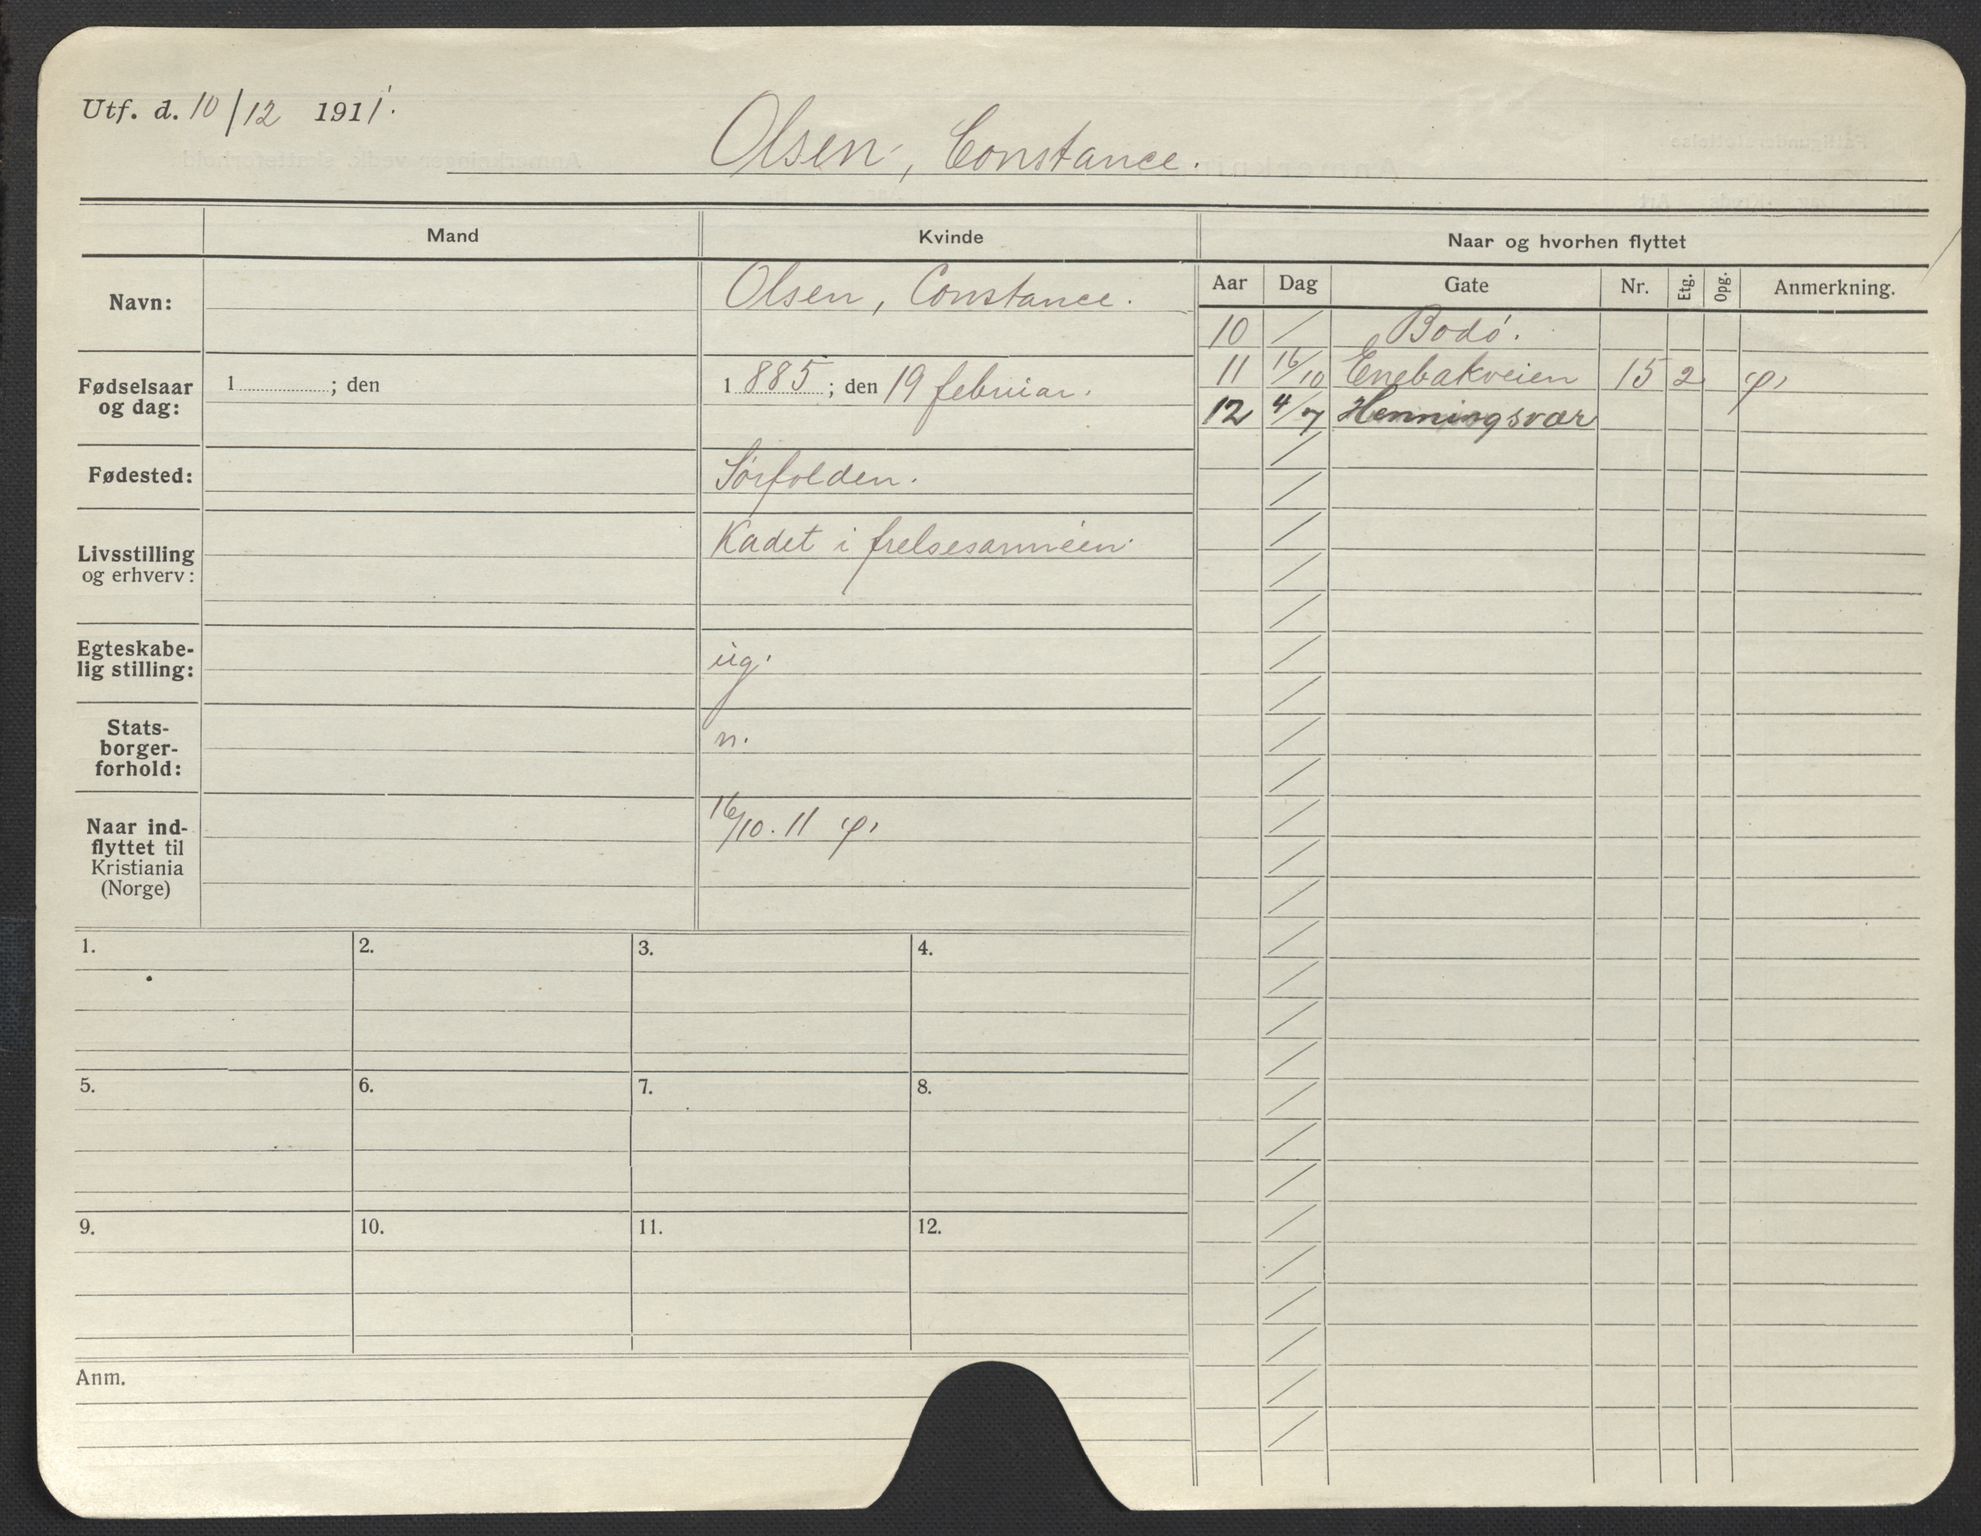 Utf. d. 10/12 1911.
Olsen, Constance.
Mand
Kvinde
Naar og hvorhen flyttet
Navn:
Olsen, Constance.
Fødselsaar
og dag:
1 ; den
1 885 ; den 19 februar.
Fødested:
Sörfolden.
Livsstilling
og erhverv:
Kadet i frelsesarméen.
Egteskabe-
lig stilling:
ug.
Stats-
borger-
forhold:
n.
Naar ind-
flyttet til
Kristiania
(Norge)
16/10. 11
Aar Dag Gate Nr. Etg. Opg. Anmerkning.
10 / Bodö.
11 16/10 Enebakveien 15 2
12 4/7 Henningsvær
1. 2. 3. 4.
5. 6. 7. 8.
9. 10. 11. 12.
Anm.